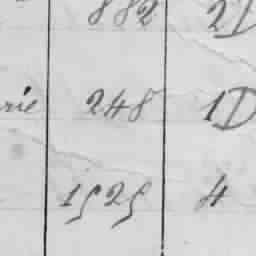 882 2D
rie 248 1D
1525 4